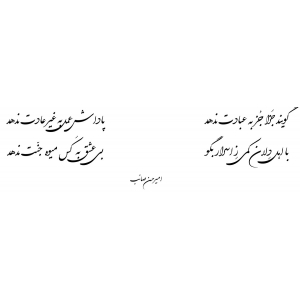 گویند جزا جز به عبادت ندهد پاداش عمل به غیر عادت ندهد
با اهل دلان کمی ز اسرار بگو بی عشق به کس میوه جنّت ندهد
امیرحسن صائب